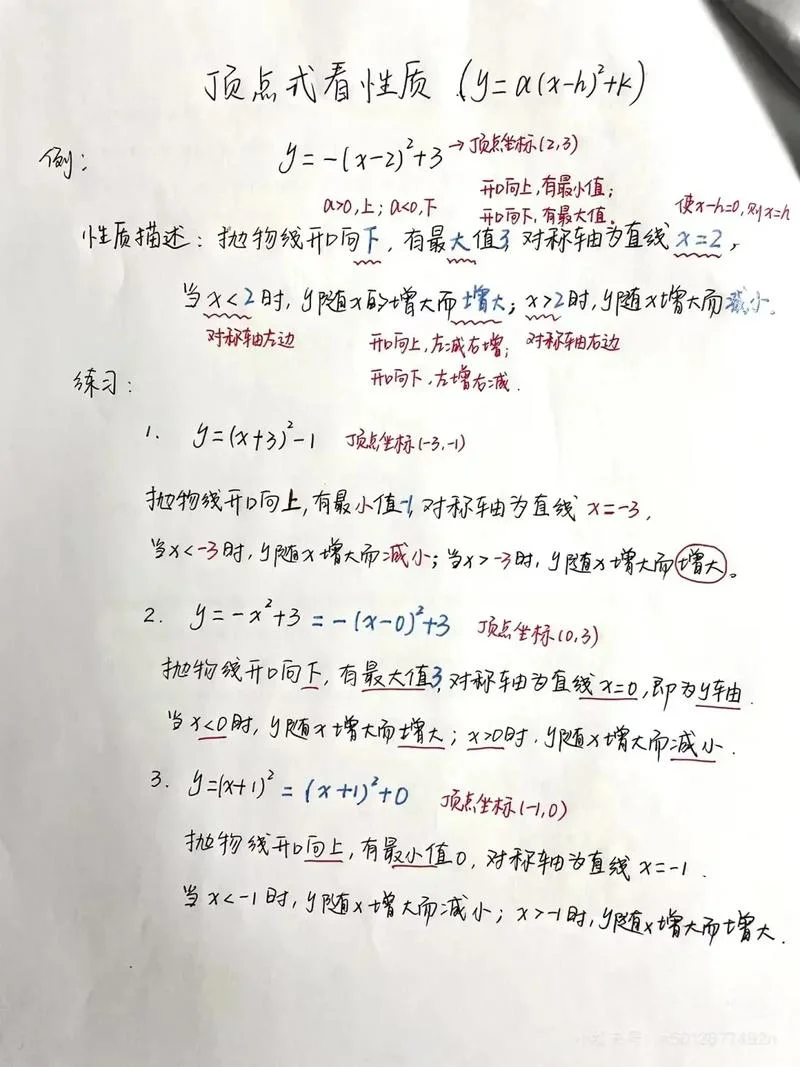 顶点式看性质 (y=a(x-h)²+k)
例: y=-(x-2)²+3 →顶点坐标(2,3)
a>0,上; a<0,下 开口向上,有最小值;
开口向下,有最大值。 使x-h=0,则x=h
性质描述: 抛物线开口向下, 有最大值3, 对称轴为直线 x=2,
当x<2时, y随x的增大而增大; x>2时, y随x增大而减小。
对称轴左边 开口向上,左减右增; 对称轴右边
开口向下,左增右减.
练习:
1. y=(x+3)²-1 顶点坐标(-3,-1)
抛物线开口向上,有最小值-1, 对称轴为直线 x=-3,
当x<-3时, y随x增大而减小; 当x>-3时, y随x增大而增大。
2. y=-x²+3 =-(x-0)²+3 顶点坐标(0,3)
抛物线开口向下, 有最大值3, 对称轴为直线x=0, 即为y轴.
当x<0时, y随x增大而增大; x>0时, y随x增大而减小.
3. y=(x+1)² =(x+1)²+0 顶点坐标(-1,0)
抛物线开口向上, 有最小值0, 对称轴为直线x=-1.
当x<-1时, y随x增大而减小; x>-1时, y随x增大而增大.